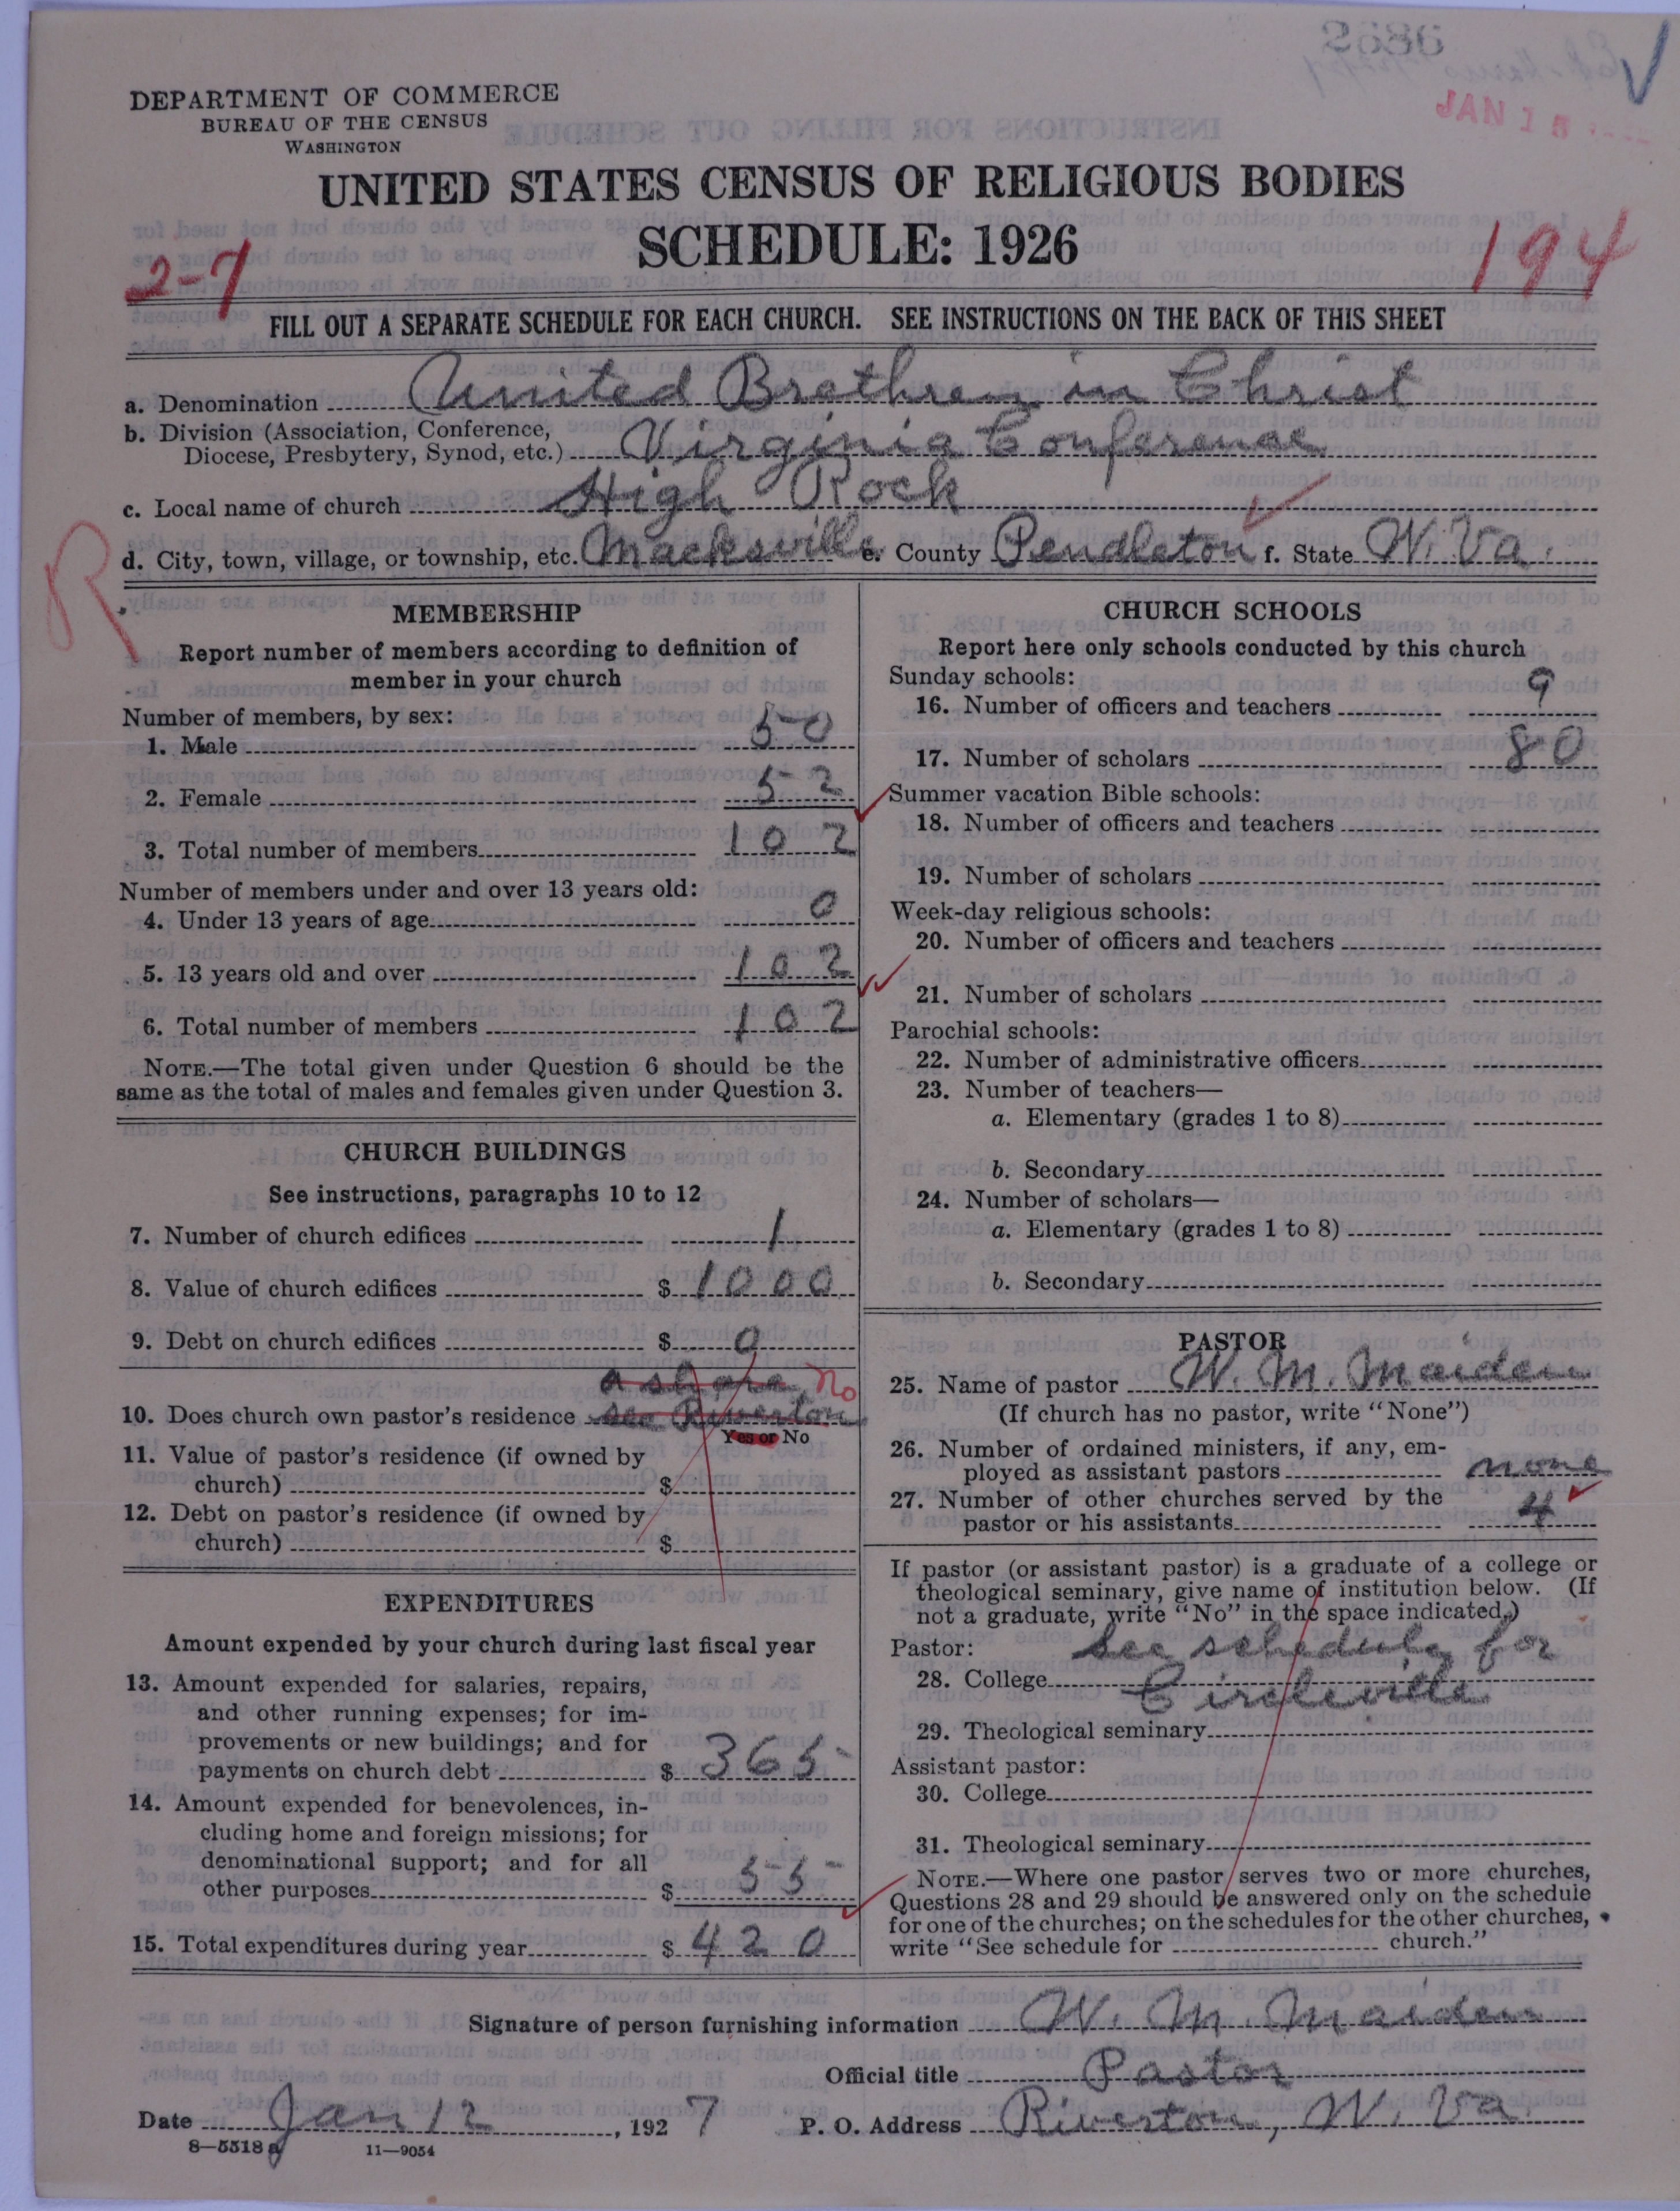 2586
JAN 15
DEPARTMENT OF COMMERCE
BUREAU OF THE CENSUS
WASHINGTON
UNITED STATES CENSUS OF RELIGIOUS BODIES
SCHEDULE: 1926
2-7
194
FILL OUT A SEPARATE SCHEDULE FOR EACH CHURCH. SEE INSTRUCTIONS ON THE BACK OF THIS SHEET
a. Denomination United Brethren in Christ
b. Division (Association, Conference, Diocese, Presbytery, Synod, etc.) Virginia Conference
c. Local name of church High Rock
d. City, town, village, or township, etc. Macksville e. County Pendleton f. State W. Va.
R
MEMBERSHIP
Report number of members according to definition of
member in your church
Number of members, by sex:
1. Male 50
2. Female 52
3. Total number of members 102
Number of members under and over 13 years old:
4. Under 13 years of age 0
5. 13 years old and over 102
6. Total number of members 102
NOTE.—The total given under Question 6 should be the
same as the total of males and females given under Question 3.
CHURCH BUILDINGS
See instructions, paragraphs 10 to 12
7. Number of church edifices 1
8. Value of church edifices $ 1000
9. Debt on church edifices $ 0
a share No
10. Does church own pastor's residence see Riverton
Yes or No
11. Value of pastor's residence (if owned by
church) $
12. Debt on pastor's residence (if owned by
church) $
EXPENDITURES
Amount expended by your church during last fiscal year
13. Amount expended for salaries, repairs,
and other running expenses; for im-
provements or new buildings; and for
payments on church debt $ 365
14. Amount expended for benevolences, in-
cluding home and foreign missions; for
denominational support; and for all
other purposes $ 55
15. Total expenditures during year $ 420
CHURCH SCHOOLS
Report here only schools conducted by this church
Sunday schools:
16. Number of officers and teachers 9
17. Number of scholars 80
Summer vacation Bible schools:
18. Number of officers and teachers
19. Number of scholars
Week-day religious schools:
20. Number of officers and teachers
21. Number of scholars
Parochial schools:
22. Number of administrative officers
23. Number of teachers—
a. Elementary (grades 1 to 8)
b. Secondary
24. Number of scholars—
a. Elementary (grades 1 to 8)
b. Secondary
PASTOR
25. Name of pastor W. M. Maiden
(If church has no pastor, write "None")
26. Number of ordained ministers, if any, em-
ployed as assistant pastors none
27. Number of other churches served by the
pastor or his assistants 4
If pastor (or assistant pastor) is a graduate of a college or
theological seminary, give name of institution below. (If
not a graduate, write "No" in the space indicated.)
Pastor: See schedule for
28. College Circleville
29. Theological seminary
Assistant pastor:
30. College
31. Theological seminary
NOTE.—Where one pastor serves two or more churches,
Questions 28 and 29 should be answered only on the schedule
for one of the churches; on the schedules for the other churches,
write "See schedule for church."
Signature of person furnishing information W. M. Maiden
Official title Pastor
Date Jan 12, 1927 P. O. Address Riverton, W. Va.
8—5518 a 11—9054